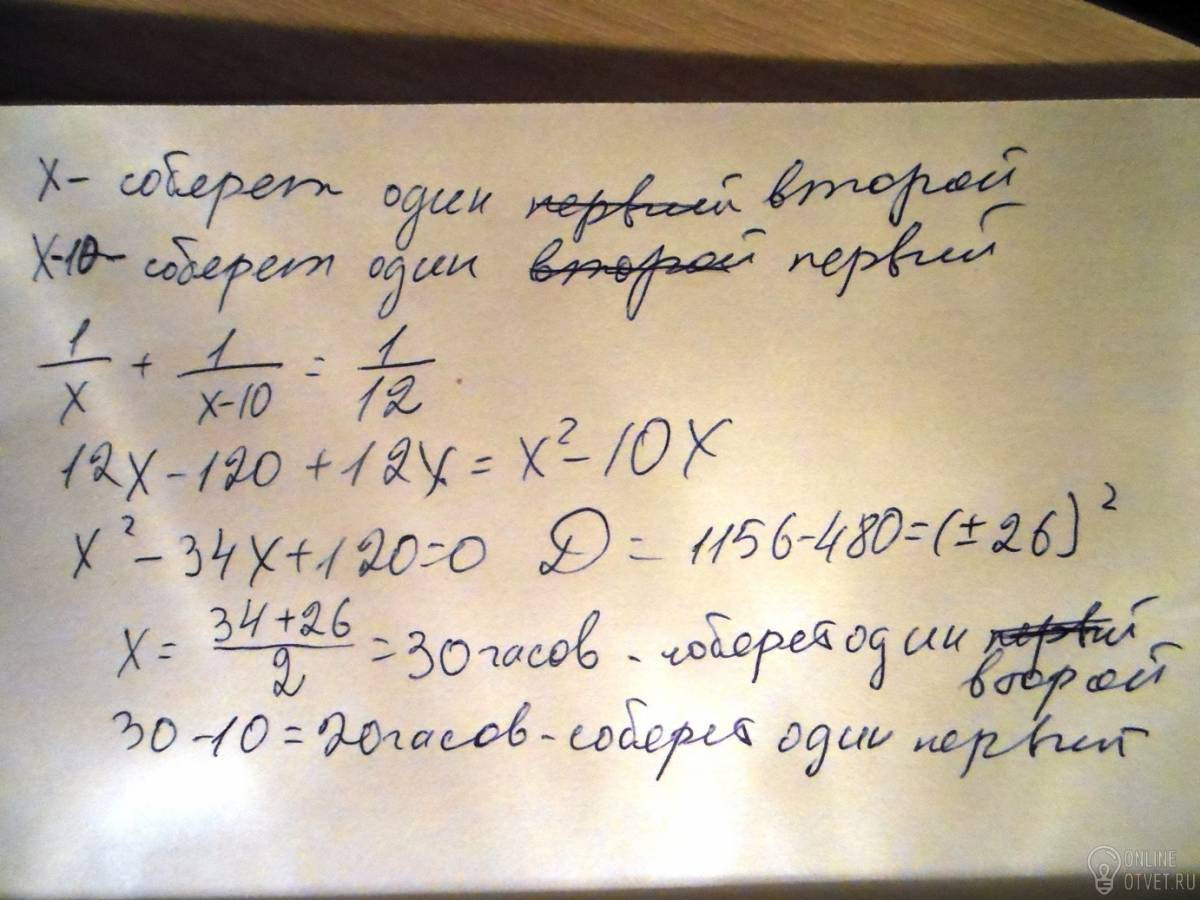 x- соберет один первый второй
x-10- соберет один второй первый
1/x + 1/(x-10) = 1/12
12x-120+12x=x²-10x
x²-34x+120=0 D=1156-480=(±26)²
x= (34+26)/2 =30часов - соберет один первый
второй
30-10=20часов-соберет один первый
ONLINE
OTVET.RU